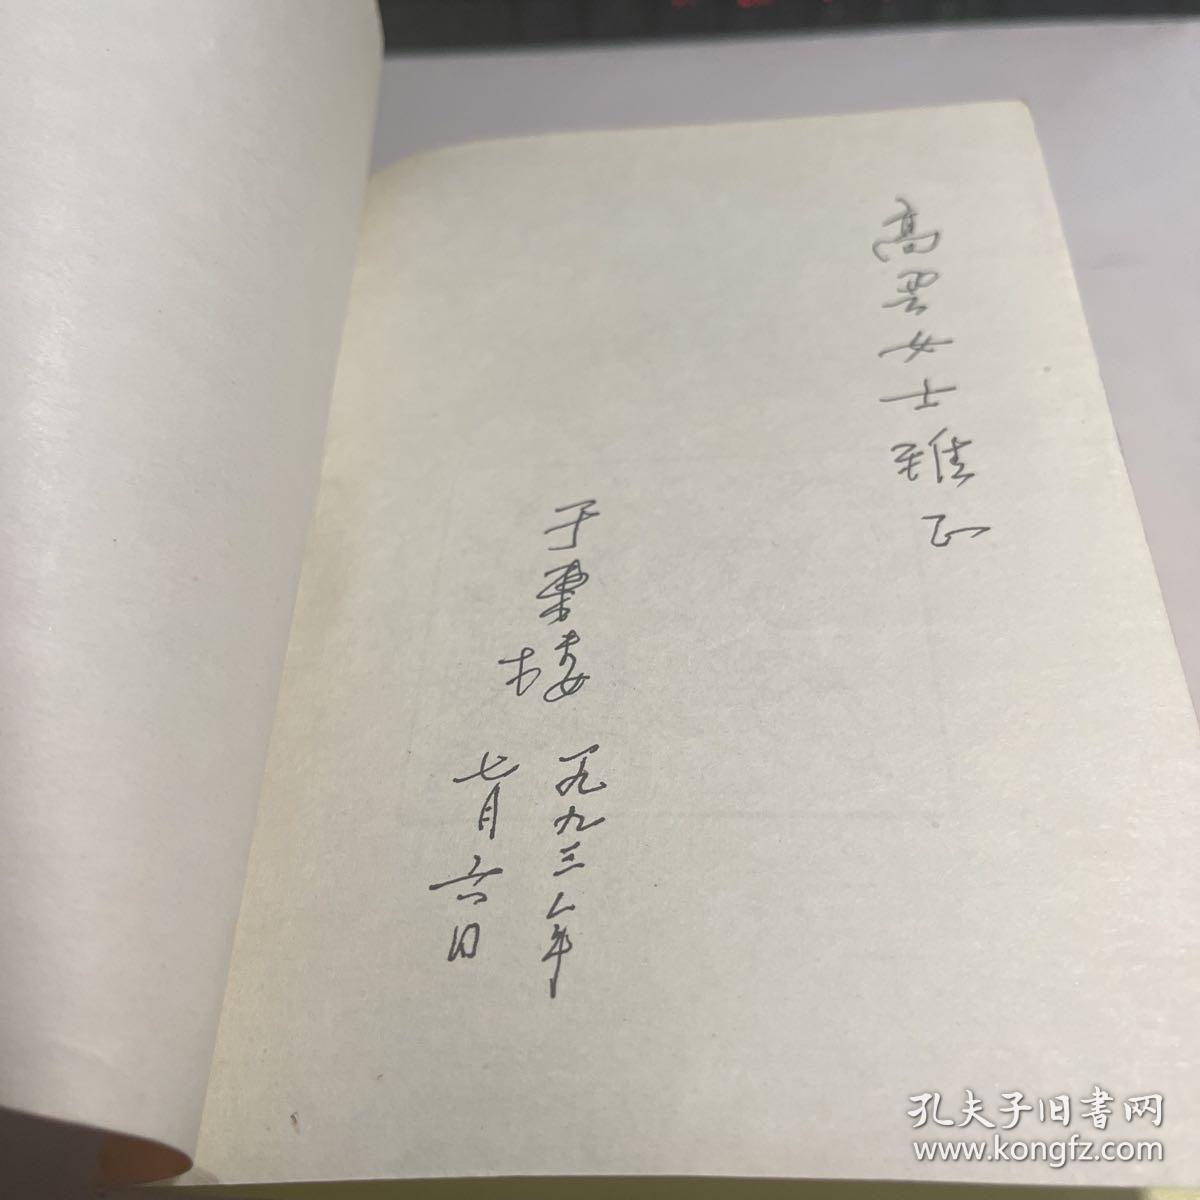 高女士雅正
于東楼
一九九三年
七月六日
孔夫子旧书网
www.kongfz.com